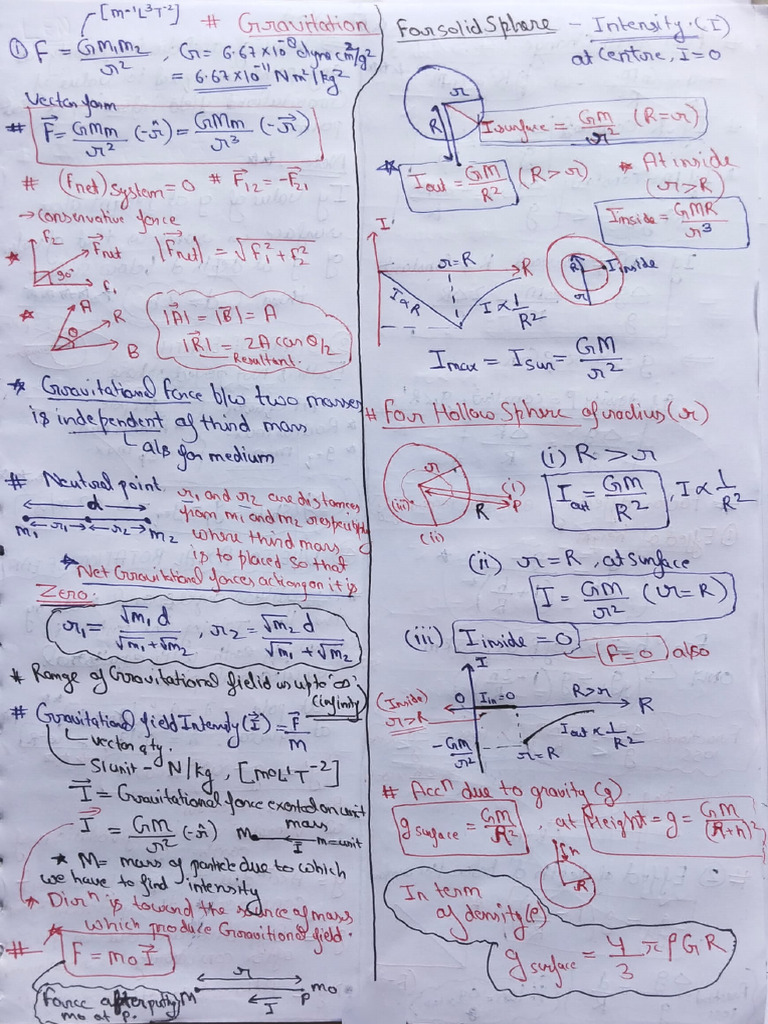 [m⁻¹L³T⁻²]
# Gravitation
① F = Gm₁m₂/r² , G = 6.67×10⁻⁸ dyne cm²/g²
= 6.67×10⁻¹¹ Nm²/kg²
Vector form
# F⃗ = GMm/r² (-r̂) = GMm/r³ (-r⃗)
# (Fnet)system = 0 # F⃗₁₂ = -F⃗₂₁
→ Conservative force
* F₂ F⃗net 90° F₁ |F⃗net| = √F₁²+F₂²
* A R θ B
|A⃗| = |B⃗| = A
|R⃗| = 2A cos θ/2
Resultant.
* Gravitational force b/w two masses
is independent of third mass
also for medium
# Neutral point
d
m₁ r₁ r₂ m₂
r₁ and r₂ are distances
from m₁ and m₂ respectively
where third mass
is to placed so that
* Net Gravitational forces acting on it is
Zero:
r₁ = √m₁ d/√m₁+√m₂ , r₂ = √m₂ d/√m₁+√m₂
* Range of Gravitational field is upto '∞'
(infinity)
# Gravitational field Intensity (I⃗) = F⃗/m
vector qty.
SI unit - N/kg , [m⁰L¹T⁻²]
I⃗ = Gravitational force exerted on unit
mass
I⃗ = GM/r² (-r̂) M I m=unit
* M = mass of particle due to which
we have to find intensity
* Dirⁿ is toward the source of mass
* which produce Gravitional field.
# F = m₀I⃗
Force after putting
m₀ at P.
M r I P m₀
For solid Sphere - Intensity (I)
at centre, I=0
r R
Isurface = GM/r² (R=r)
* Iout = GM/R² (R>r)
* At inside
(r>R)
Inside = GMR/r³
I r=R R
I∝R I∝1/R²
R Iinside r
Imax = Isur = GM/r²
# For Hollow Sphere of radius (r)
r (i) P R (iii) (ii)
(i) R > r
Iout = GM/R² , I∝1/R²
(ii) r=R , at surface
I = GM/r² (r=R)
(iii) Iinside = 0
(F=0) also
I
(Inside) r>R O Iin=0 R>r R
-GM/r² r=R Iout∝1/R²
# Accⁿ due to gravity (g)
gsurface = GM/R² , at Height = g = GM/(R+h)²
h R
In term
of density (ρ)
gsurface = 4/3 πρGR